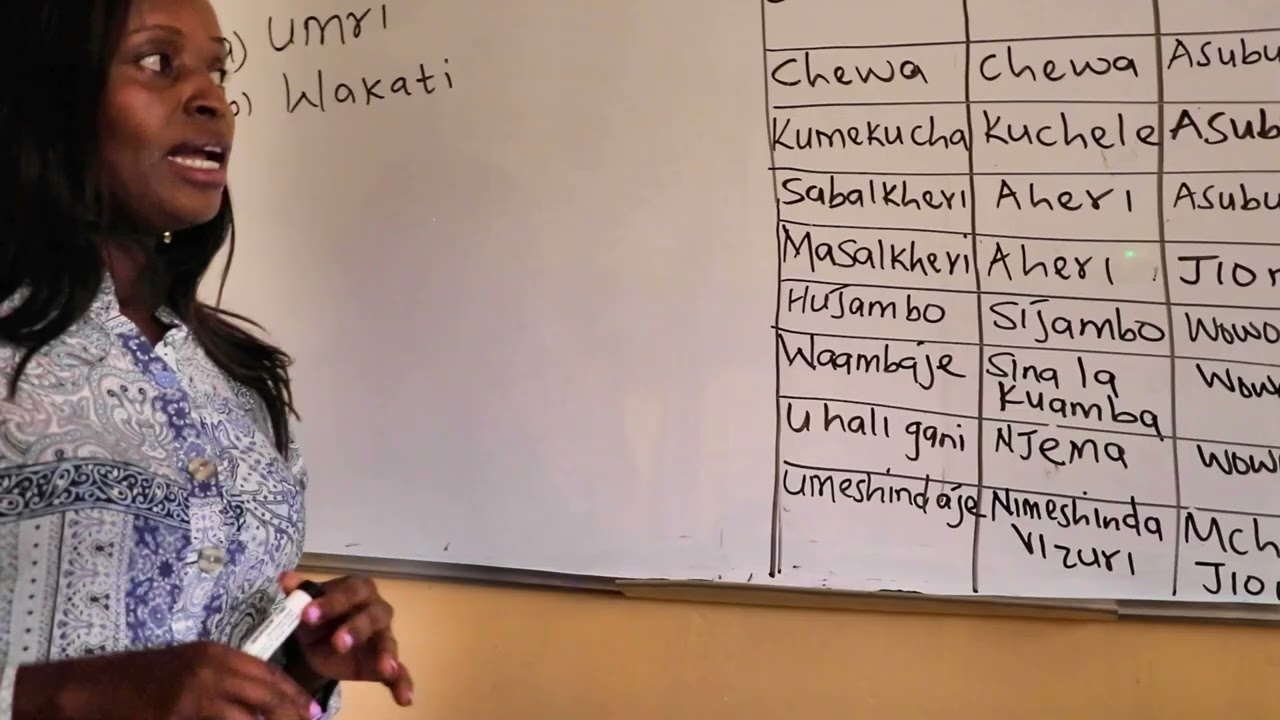 a) Umri
b) Wakati
Chewa Chewa Asubu
Kumekucha Kuchele Asub
Sabalkheri Aheri Asubu
Masalkheri Aheri Jion
Hujambo Sijambo Wowo
Waambaje Sina la
Kuamba Wow
Uhali gani Njema Wow
Umeshindaje Nimeshinda Mch
Vizuri Jio